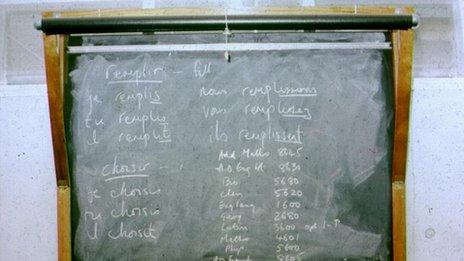 remplir – fill
je remplis nous remplissons
tu remplis vous remplissez
il remplit ils remplissent
choisir –
je choisis
tu choisis
il choisit
Add Maths 8645
A.O. Eng Lit 8630
Bio 5680
Chem 5620
Eng Lang 1600
Geog 2680
Latin 3600 opt
Maths 4601
Phys 5600
8605